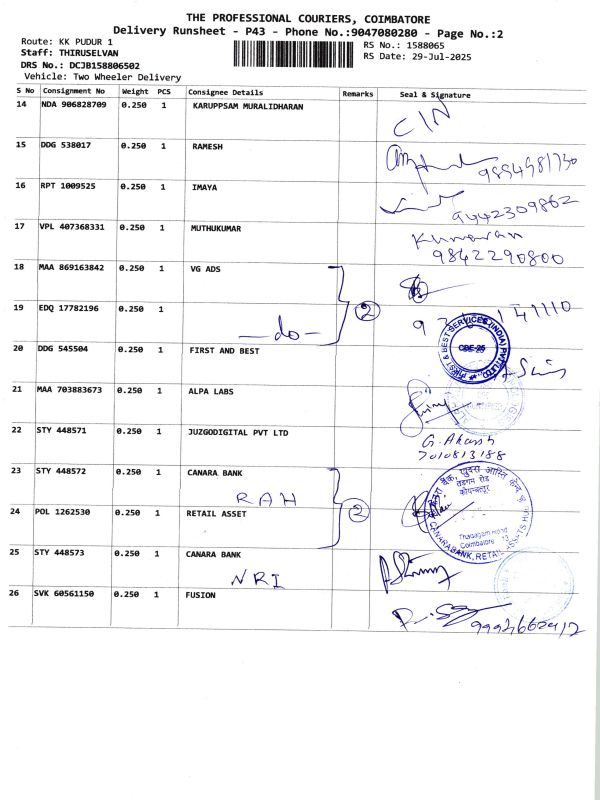 THE PROFESSIONAL COURIERS, COIMBATORE
Delivery Runsheet - P43 - Phone No.:9047080280 - Page No.:2
Route: KK PUDUR 1
RS No.: 1588065
Staff: THIRUSELVAN
RS Date: 29-Jul-2025
DRS No.: DCJB158806502
Vehicle: Two Wheeler Delivery
S No Consignment No Weight PCS Consignee Details Remarks Seal & Signature
14 NDA 906828709 0.250 1 KARUPPSAM MURALIDHARAN
CIN
15 DDG 538017 0.250 1 RAMESH
16 RPT 1009525 0.250 1 IMAYA
9442309862
17 VPL 407368331 0.250 1 MUTHUKUMAR
Kumaran
9842290800
18 MAA 869163842 0.250 1 VG ADS
2
19 EDQ 17782196 0.250 1
—do—
20 DDG 545504 0.250 1 FIRST AND BEST
FIRST & BEST SERVICES (INDIA) PVT LTD.
CBE-25
21 MAA 703883673 0.250 1 ALPA LABS
22 STY 448571 0.250 1 JUZGODIGITAL PVT LTD
G. Akash
7010813188
23 STY 448572 0.250 1 CANARA BANK
RAH
2
24 POL 1262530 0.250 1 RETAIL ASSET
Thadagam Road
Coimbatore
CANARA BANK, RETAIL ASSETS HUB
25 STY 448573 0.250 1 CANARA BANK
NRI
26 SVK 60561150 0.250 1 FUSION